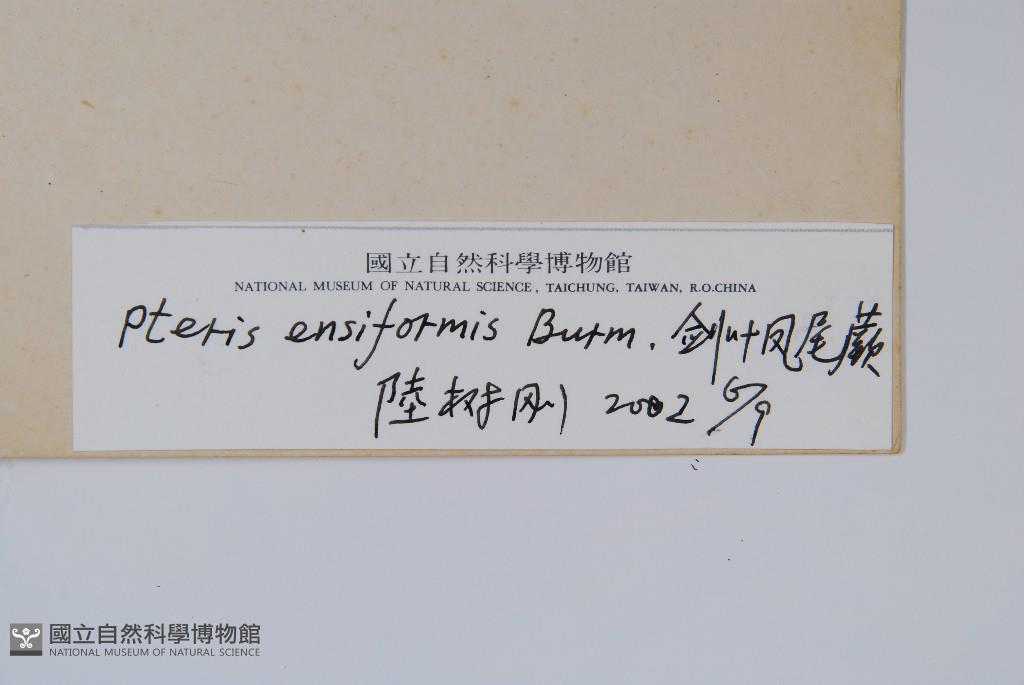 國立自然科學博物館
NATIONAL MUSEUM OF NATURAL SCIENCE, TAICHUNG, TAIWAN, R.O.CHINA
Pteris ensiformis Burm. 剑叶凤尾蕨
陸树刚 2002 6/9
國立自然科學博物館
NATIONAL MUSEUM OF NATURAL SCIENCE